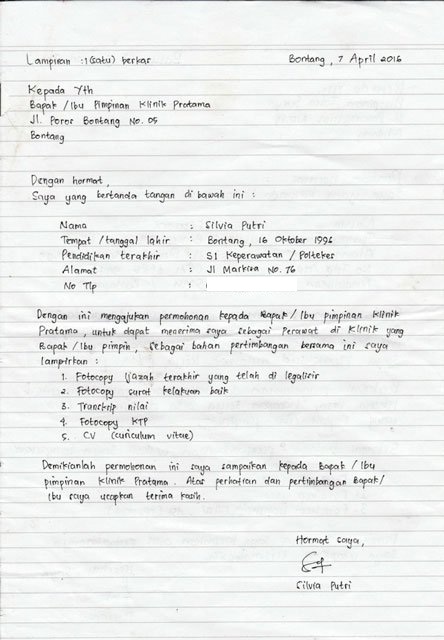 Lampiran : 1 (satu) berkas
Bontang, 7 April 2016
Kepada Yth
Bapak / Ibu Pimpinan Klinik Pratama
Jl. Poros Bontang No. 05
Bontang
Dengan hormat,
Saya yang bertanda tangan di bawah ini :
Nama : Silvia Putri
Tempat / tanggal lahir : Bontang, 16 Oktober 1996
Pendidikan terakhir : S1 Keperawatan / Poltekes
Alamat : Jl Markisa No. 76
No Tlp :
Dengan ini mengajukan permohonan kepada Bapak / Ibu pimpinan Klinik
Pratama, untuk dapat menerima saya sebagai Perawat di Klinik yang
Bapak / Ibu pimpin, sebagai bahan pertimbangan bersama ini saya
lampirkan :
1. Fotocopy Ijazah terakhir yang telah di legalisir
2. Fotocopy surat kelakuan baik
3. Transkrip nilai
4. Fotocopy KTP
5. CV (curiculum vitae)
Demikianlah permohonan ini saya sampaikan kepada Bapak / Ibu
pimpinan Klinik Pratama. Atas perhatian dan pertimbangan Bapak/
Ibu saya ucapkan terima kasih.
Hormat saya,
Silvia Putri